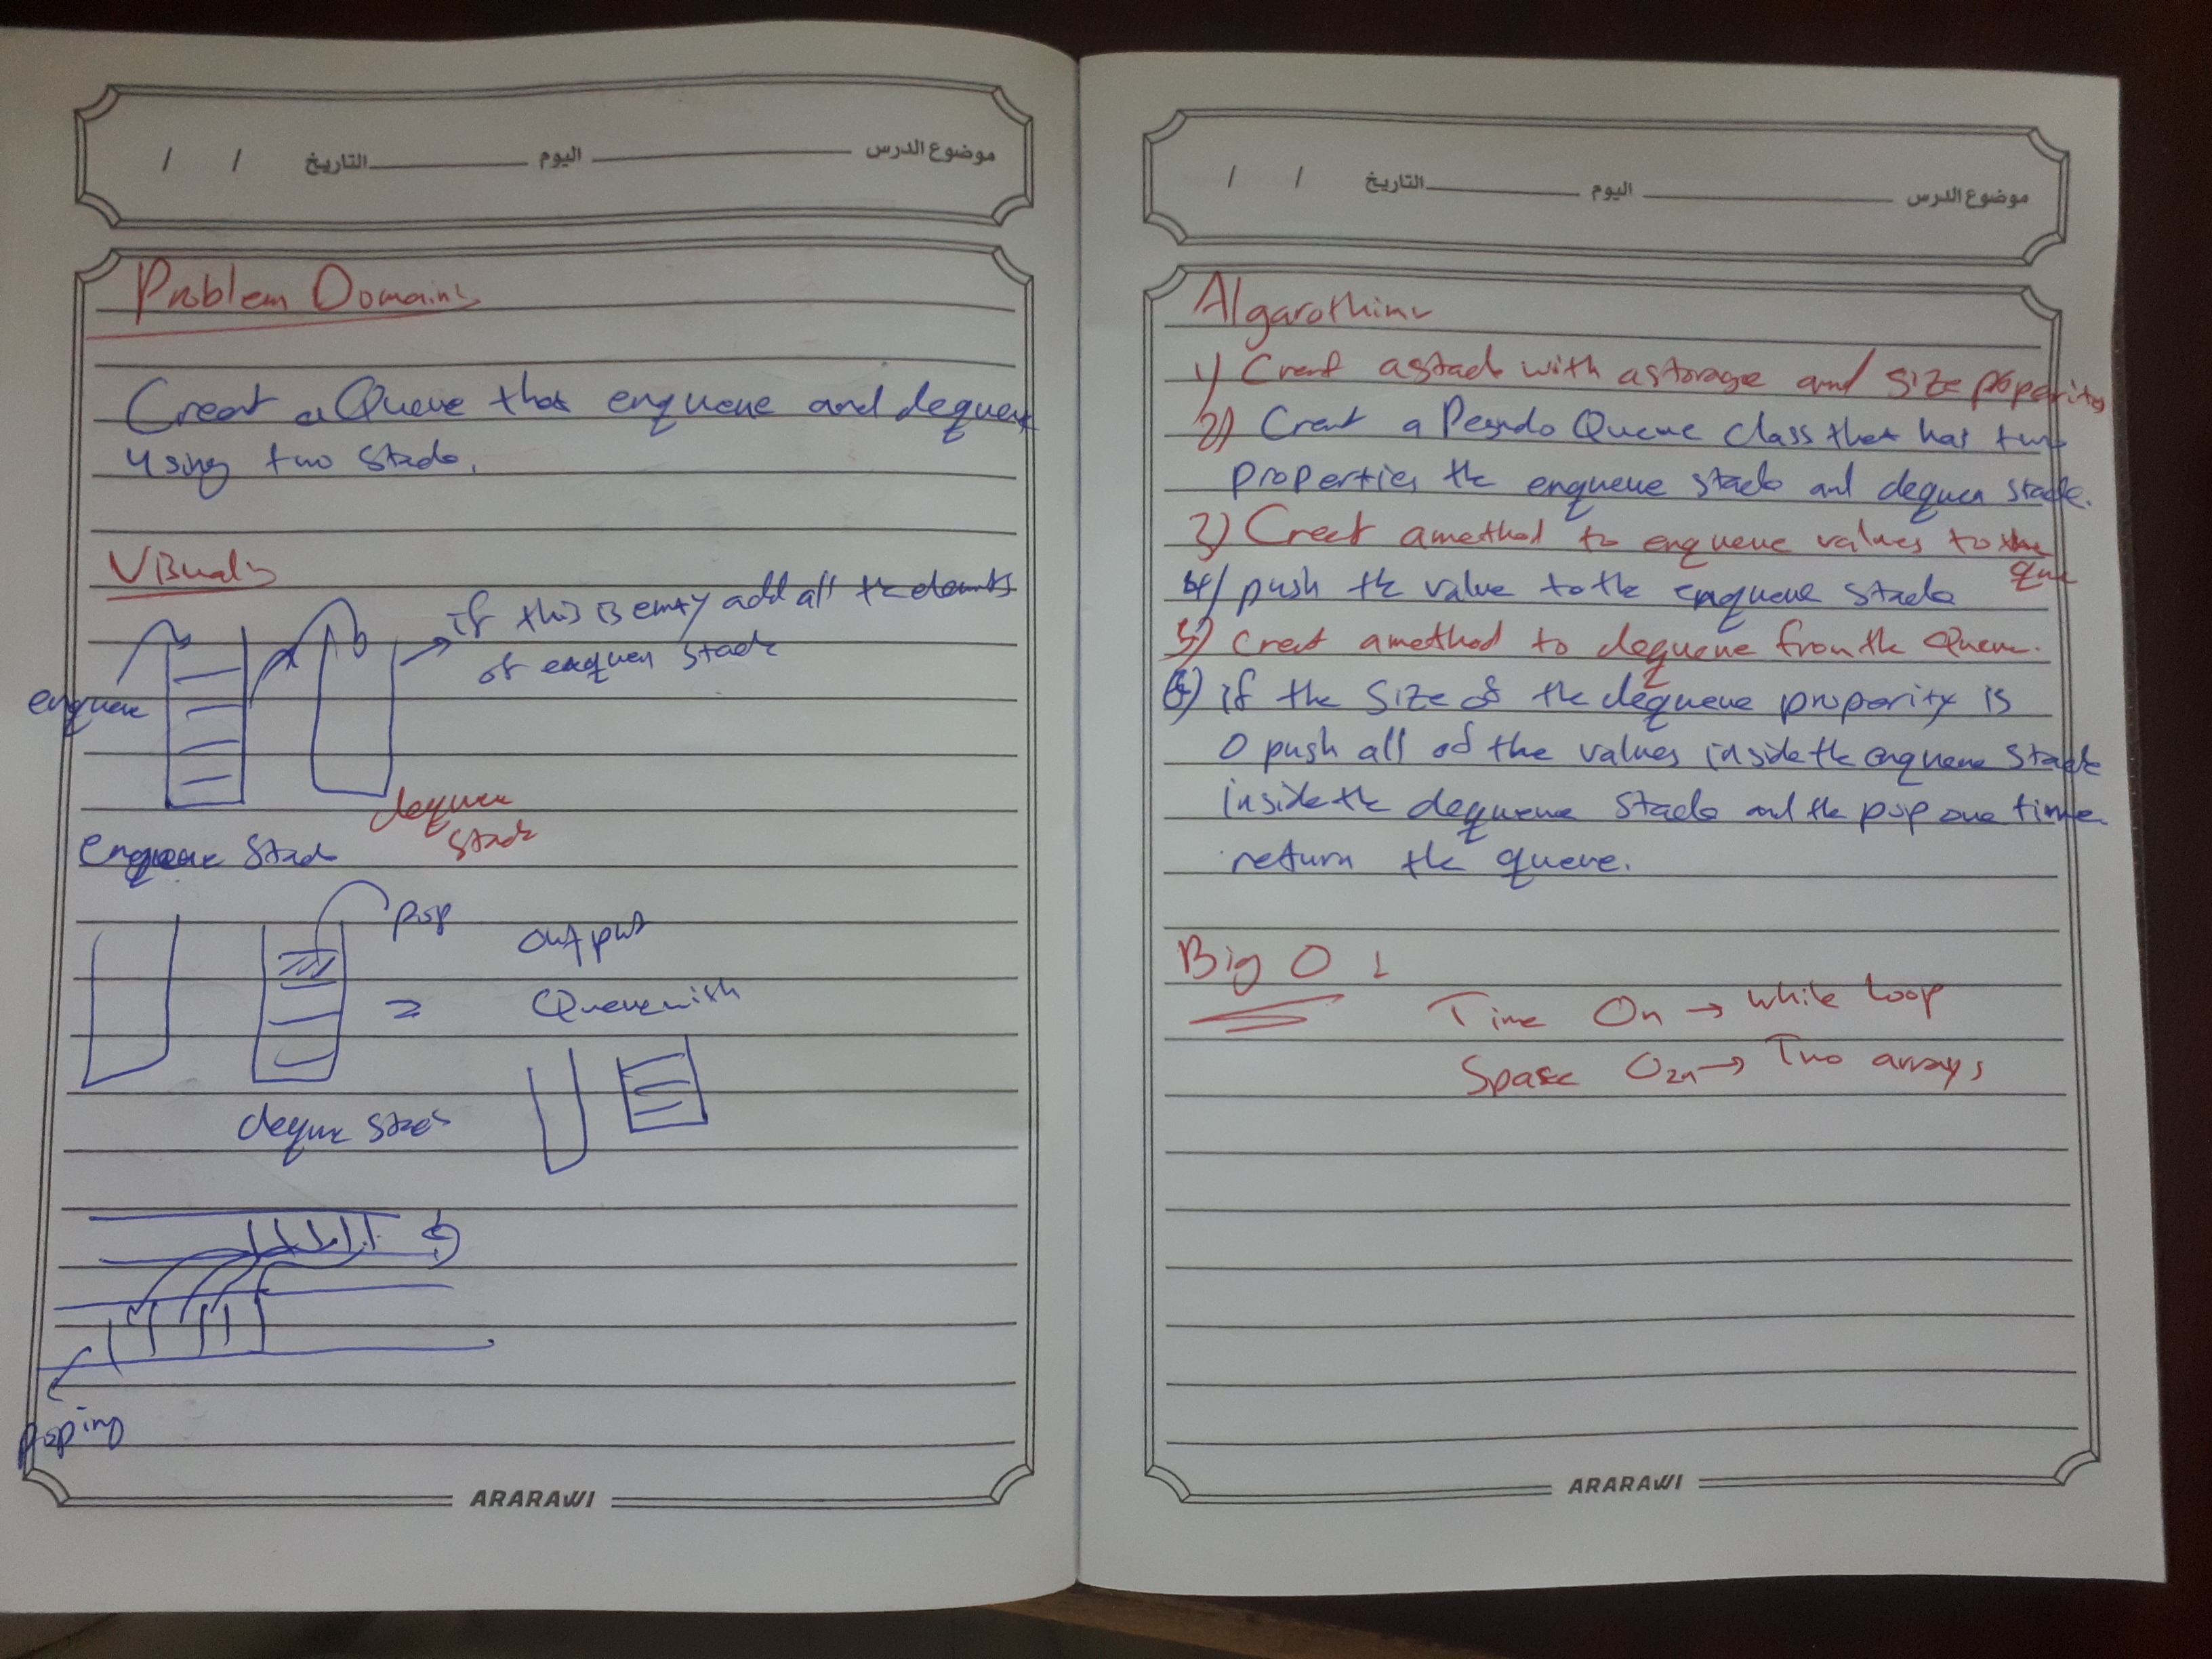 / / التاريخ اليوم موضوع الدرس
Problem Domain:
Creat a Queue that enqueue and dequeue
using two stack.
Visual:
enqueue
if this is emty add all the elements
of enqueu stack
dequeu
stack
enqueue stack
pop output
= Queue-ish
dequeue stack
poping
ARARAWI
/ / التاريخ اليوم موضوع الدرس
Algarothim
1) Creat a stack with a storage and size proparity
2) Creat a Pesydo Queue class that has two
properties the enqueue stack and dequeu stack.
3) Creat a method to enqueue values to the queue
4) push the value to the enqueue stack
5) creat a method to dequeue from the Queue.
6) if the size of the dequeue proparity is
0 push all of the values inside the enqueue stack
inside the dequeue stack and the pop one time
return the queue.
Big O :
Time On → while loop
Spase O2n → Two arrays
ARARAWI